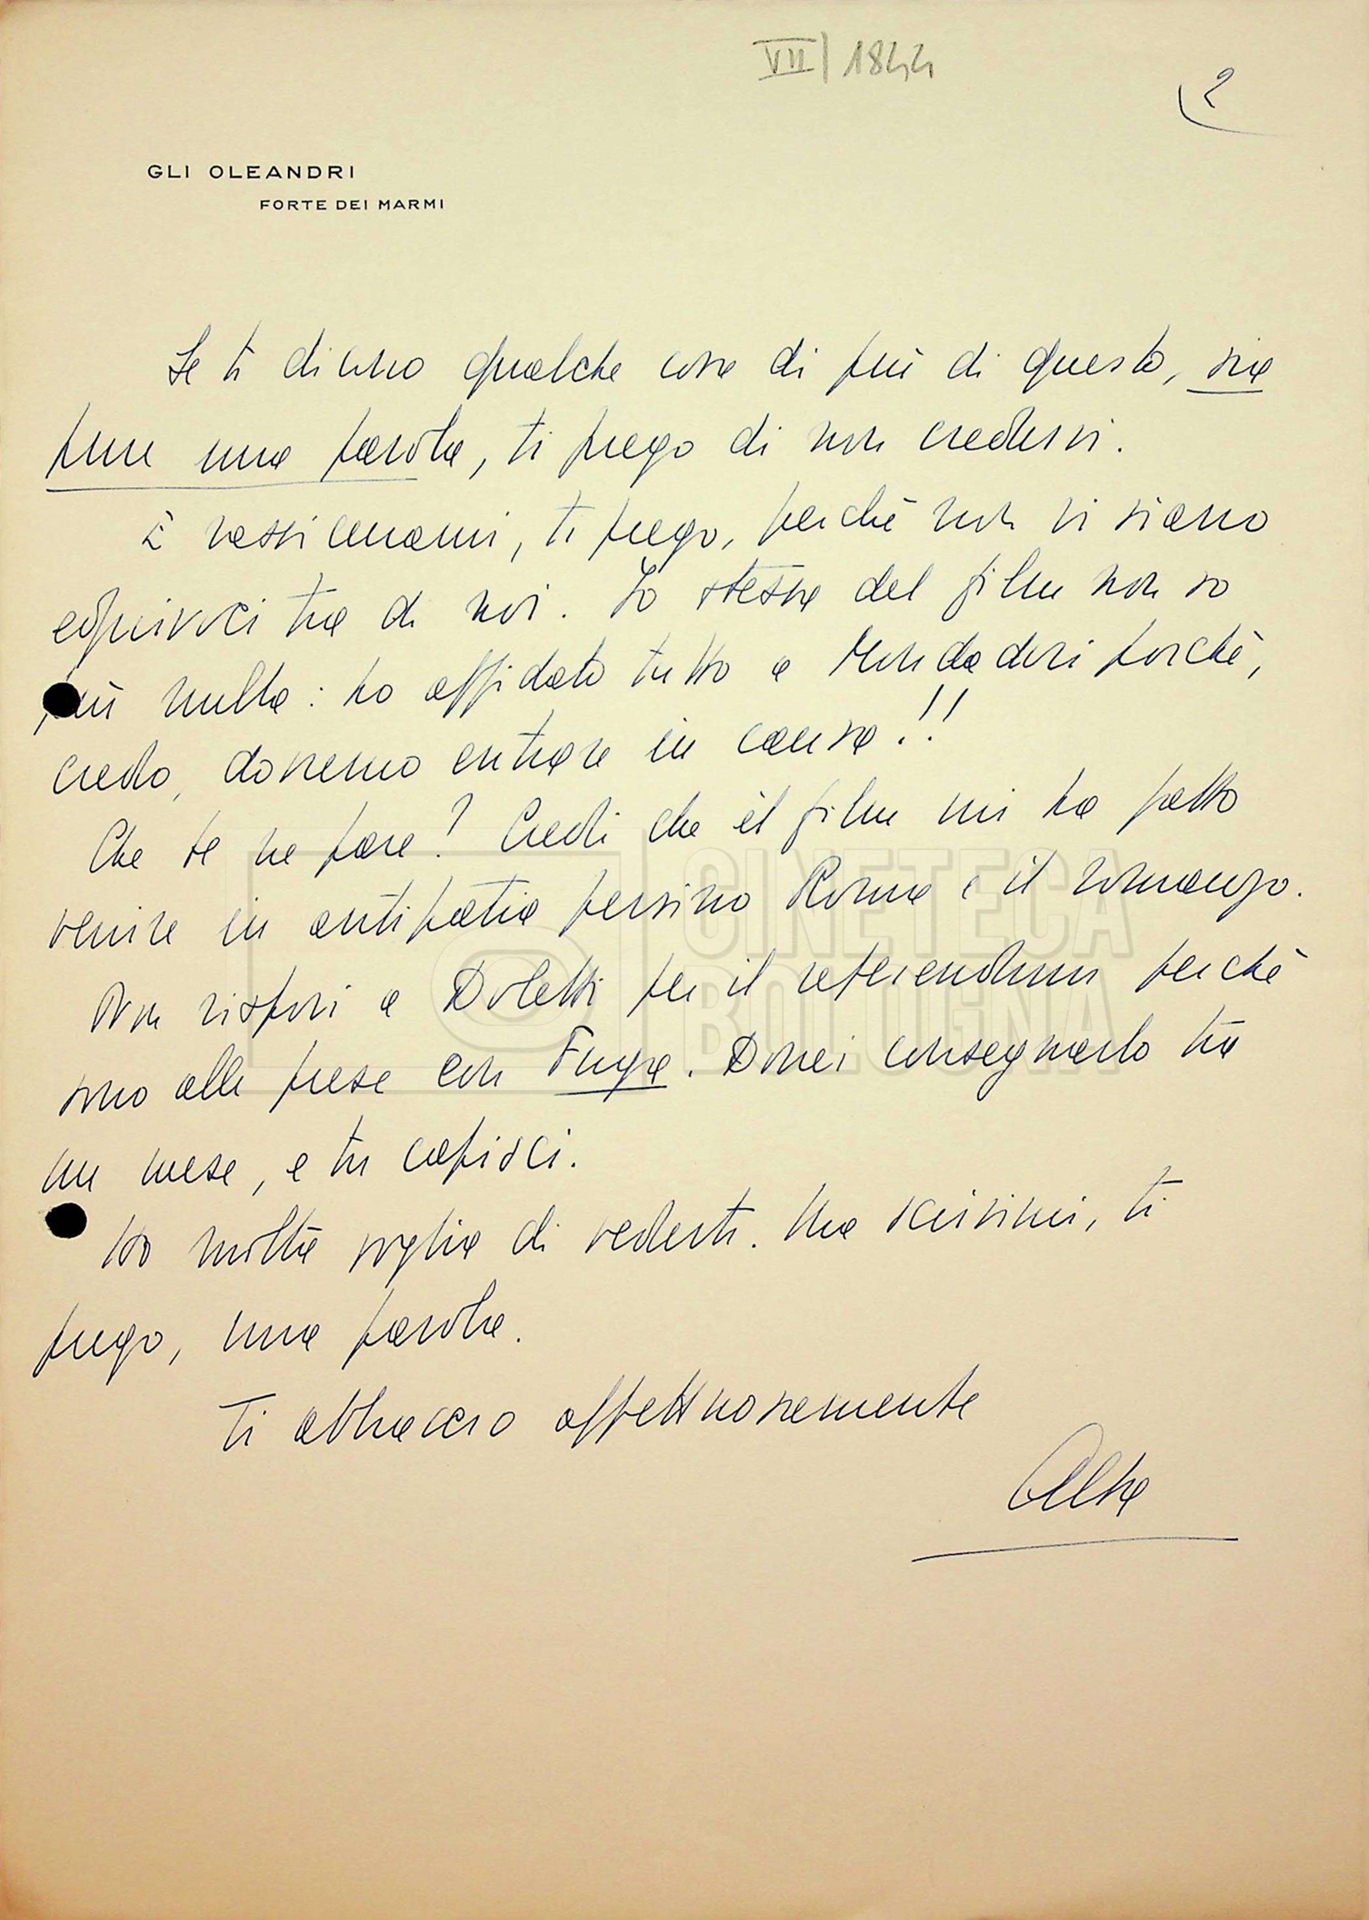 VII | 1844
2
GLI OLEANDRI
FORTE DEI MARMI
Se ti dicono qualche cosa di più di questo, sia
pure una parola, ti prego di non crederci.
E rassicurami, ti prego, perchè non vi siano
equivoci tra di noi. Io stessa del film non so
più nulla: ho affidato tutto a Mondadori perchè,
credo, dovremo entrare in causa!!
Che se ne fare? Credi che il film mi ha fatto
venire in antipatia persino Roma e il romanzo.
Non risposi a Doletti per il referendum perchè
sono alle prese con Fuga. Dovrei consegnarlo tra
un mese, e tu capisci.
Ho molta voglia di vederti. Ma scrivimi, ti
prego, una parola.
Ti abbraccio affettuosamente
Alba
CINETECA
BOLOGNA